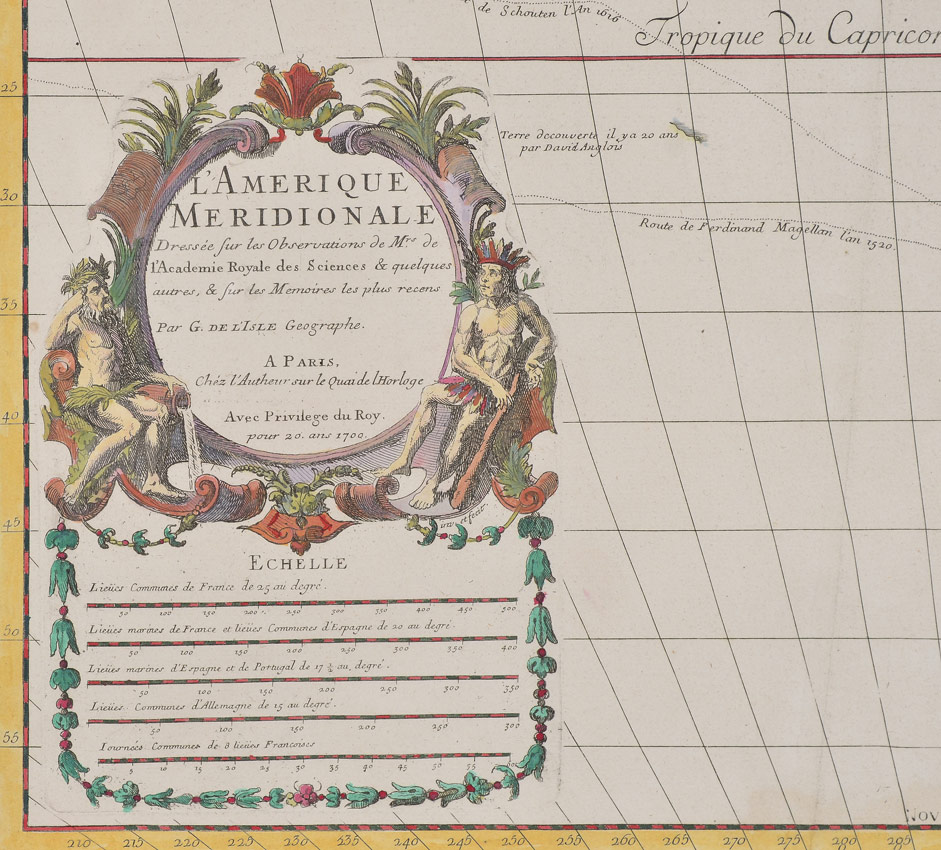 de Schouten l'An 1616
Tropique du Capricor
25
Terre decouverte il y a 20 ans
par David Anglois
L'AMERIQUE
MERIDIONALE
Dressée sur les Observations de Mrs. de
l'Academie Royale des Sciences & quelques
autres, & sur les Memoires les plus recens
Par G. DE L'ISLE Geographe.
A PARIS,
Chéz l'Autheur sur le Quai de l'Horloge
Avec Privilege du Roy.
pour 20. ans 1700.
30
Route de Ferdinand Magellan l'an 1520.
35
40
45
inv. et fecit.
ECHELLE
Lieües Communes de France de 25 au degré.
50 100 150 200 250 300 350 400 450 500
Lieües marines de France et lieües Communes d'Espagne de 20 au degré.
50 100 150 200 250 300 350 400
50
Lieües marines d'Espagne et de Portugal de 17 ½ au degré.
50 100 150 200 250 300 350
Lieües Communes d'Allemagne de 15 au degré.
50 100 150 200 250 300
55
Journées Communes de 8 lieües Francoises
5 10 15 20 25 30 35 40 45 50 55 60
NOV
210 215 220 225 230 235 240 245 250 255 260 265 270 275 280 285